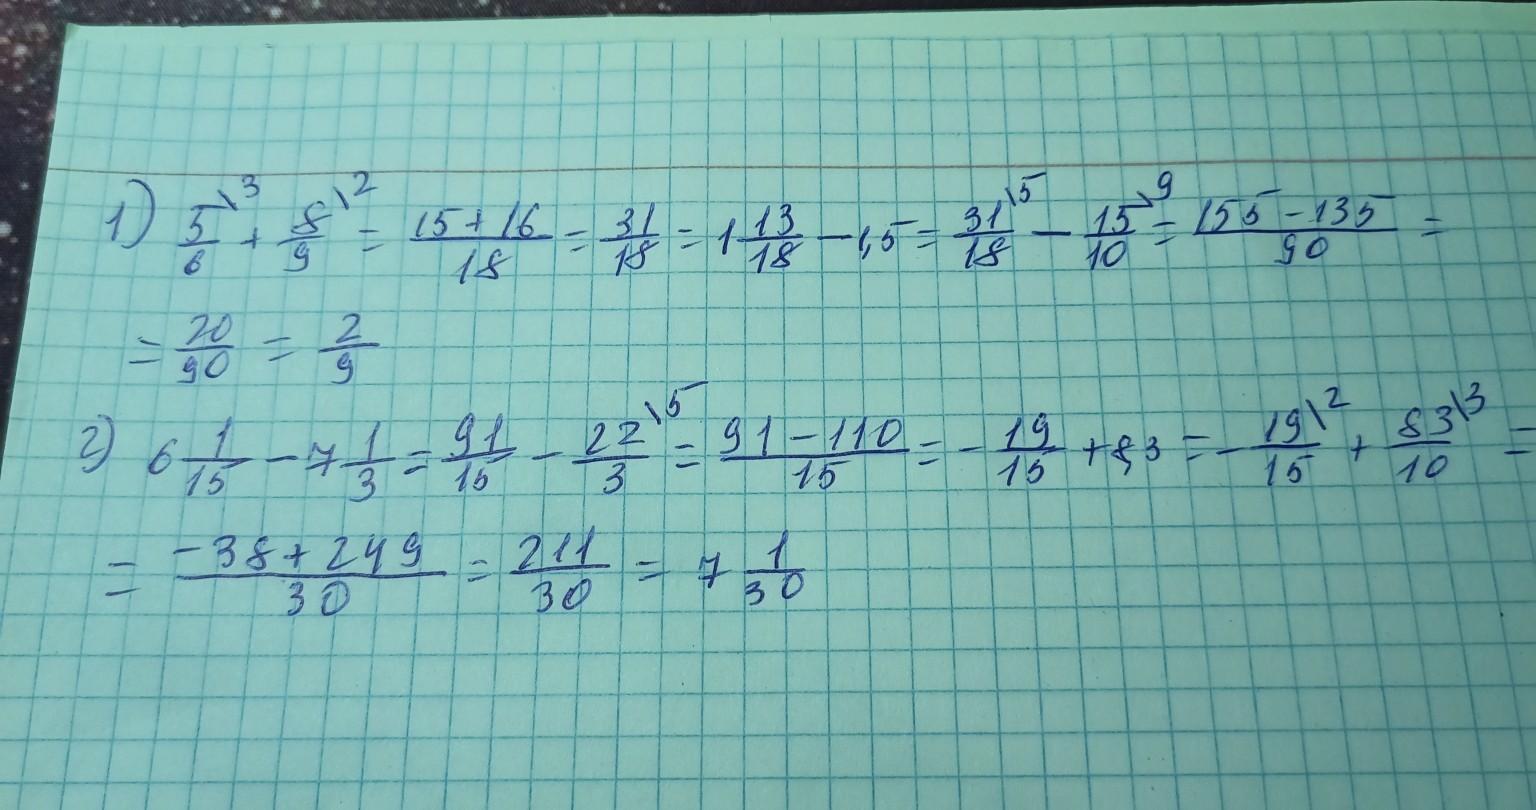 1) 5/6\3 + 8/9\2 = 15+16/18 = 31/18 = 1 13/18 - 1,5 = 31/18\5 - 15/10\9 = 155-135/90 =
= 20/90 = 2/9
2) 6 1/15 - 7 1/3 = 91/15 - 22/3\5 = 91-110/15 = - 19/15 + 8,3 = - 19/15\2 + 83/10\3 =
= -38+249/30 = 211/30 = 7 1/30